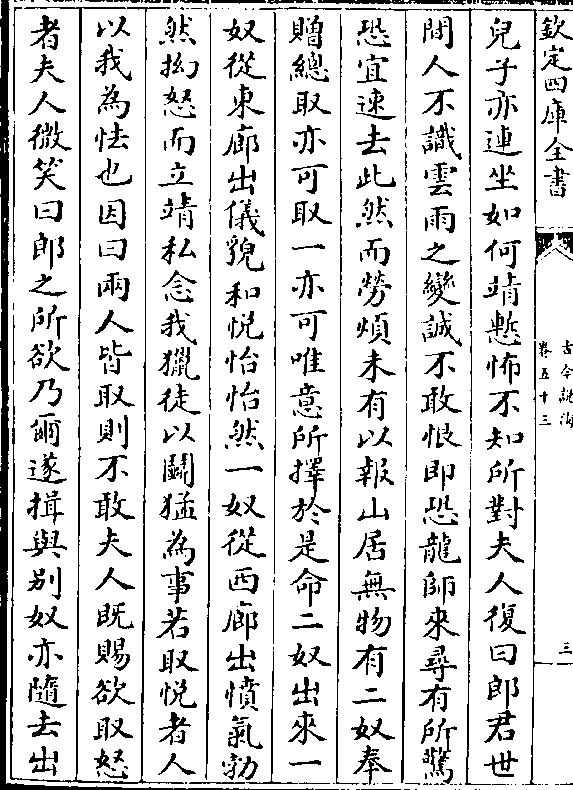 欽定四庫全書
古今説海
卷五十三
三
兒子亦連坐如何靖慙怖不知所對夫人復曰郎君世
間人不識雲雨之變誠不敢恨即恐龍師來尋有所驚
恐宜速去此然而勞煩未有以報山居無物有二奴奉
贈總取亦可取一亦可唯意所擇於是命二奴出來一
奴從東廊出儀貌和悦怡怡然一奴從西廊出憤氣勃
然拗怒而立靖私念我獵徒以鬭猛為事若取悦者人
以我為怯也因曰兩人皆取則不敢夫人既賜欲取怒
者夫人微笑曰郎之所欲乃爾遂揖與别奴亦隨去出